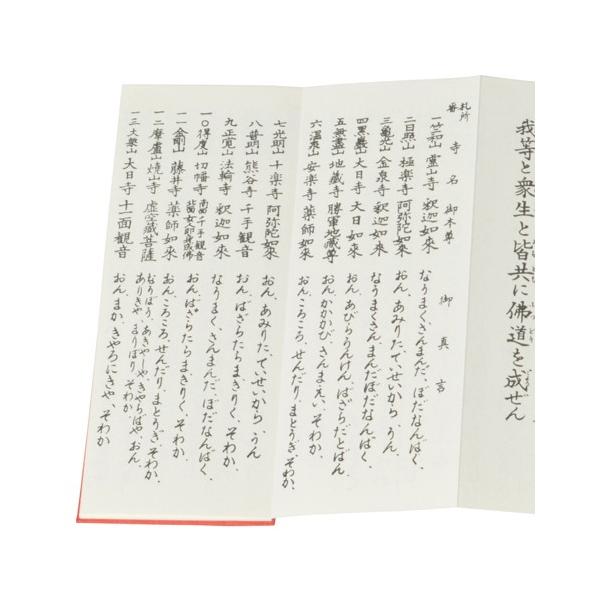 我等と衆生と皆共に佛道を成ぜん
札所 番 寺名 御本尊 御真言
一 竺和山 霊山寺 釈迦如来 なうまくさんまんだ、ぼだなんばく、
二 日照山 極楽寺 阿弥陀如来 おん、あみりた、ていせいから、うん、
三 亀光山 金泉寺 釈迦如来 なうまくさんまんだぼだなんばく、
四 黒巖山 大日寺 大日如来 おん、あびらうんけん、ばざらだとばん、
五 無盡山 地蔵寺 勝軍地蔵尊 おん、かかかび、さんまえい、そわか、
六 温泉山 安楽寺 薬師如来 おん、ころころ、せんだり、まとうぎ、そわか、
七 光明山 十楽寺 阿弥陀如来 おん、あみりた、て、せいから、うん
八 普明山 熊谷寺 千手観音 おん、ばざらたらまきりく、そわか、
九 正覚山 法輪寺 釈迦如来 なうまくさんまんだ、ぼだなんばく、
一〇 得度山 切幡寺 南面千手観音 北面女即身成佛 おん、ばざらたらまきりく、そわか、
一一 金剛山 藤井寺 薬師如来 おん、ころころ、せんだり、まとうぎ、そわか、
一二 摩盧山 焼山寺 虚空蔵菩薩 なうぼう、あきやしや、きやらばや、おん、
ありきや、まりぼり、そわか、
一三 大栗山 大日寺 十一面観音 おん、まか、きやろにきや、そわか